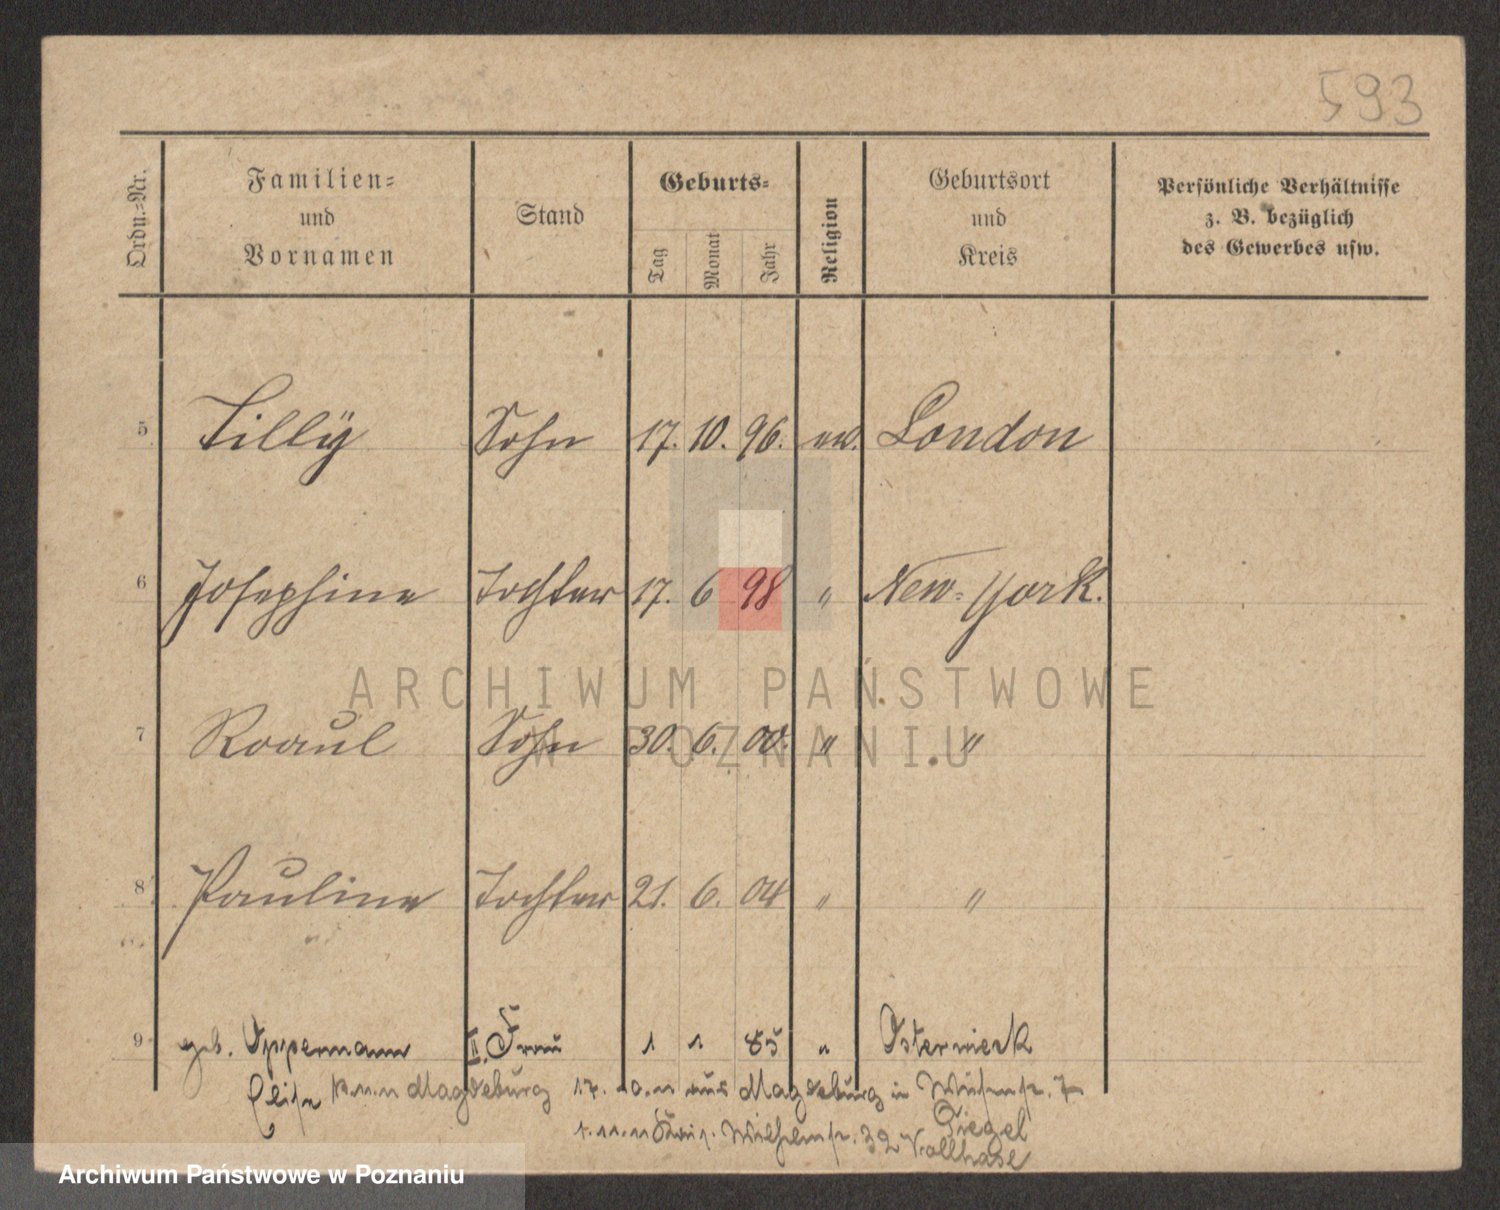 593
Ordn.-Nr. Familien- und Vornamen Stand Geburts- Tag Monat Jahr Religion Geburtsort und Kreis Persönliche Verhältnisse z. B. bezüglich des Gewerbes usw.
5 Lilly Sohn 17. 10. 96. ev. London
6 Josephine Tochter 17. 6 98 " New-York.
ARCHIWUM PAŃSTWOWE
W POZNANIU
7 Raoul Sohn 30. 6. 00. " "
8 Pauline Tochter 21. 6. 04 " "
9 geb. Oppermann II. Frau 1 1 85 " Osterwieck
Elise Magdeburg 17. aus Magdeburg in 7
1.11.11 Wilhelmstr. 32 Vollhase
Ziegel
Archiwum Państwowe w Poznaniu